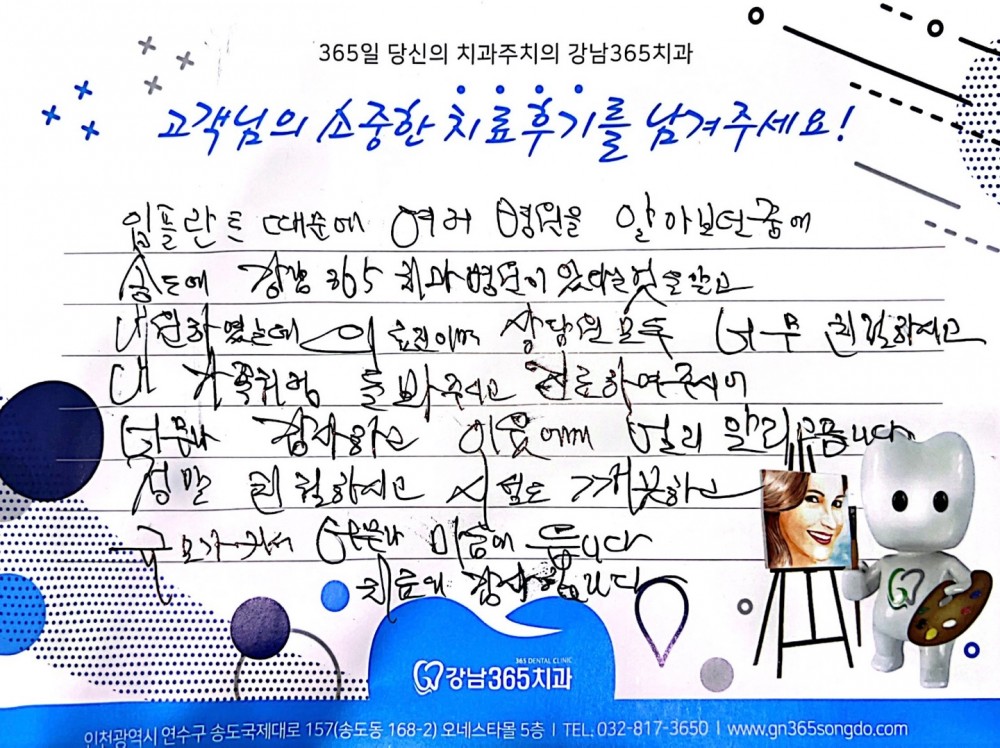 365일 당신의 치과주치의 강남365치과
고객님의 소중한 치료후기를 남겨주세요!
임플란트 때문에 여러 병원을 알아보던중에
송도에 강남 365 치과병원이 있다는 것을 알고
내원하였는데 의료진이며 상담원 모두 너무 친절하시고
내 가족처럼 돌봐주시고 진료하여주시어
너무나 감사하고 이웃에게 널리 알리고픕니다
정말 친절하시고 시설도 깨끗하고
규모가 커서 너무나 마음에 듭니다
치료에 감사합니다
365 DENTAL CLINIC
강남365치과
인천광역시 연수구 송도국제대로 157(송도동 168-2) 오네스타몰 5층 I TEL. 032-817-3650 I www.gn365songdo.com